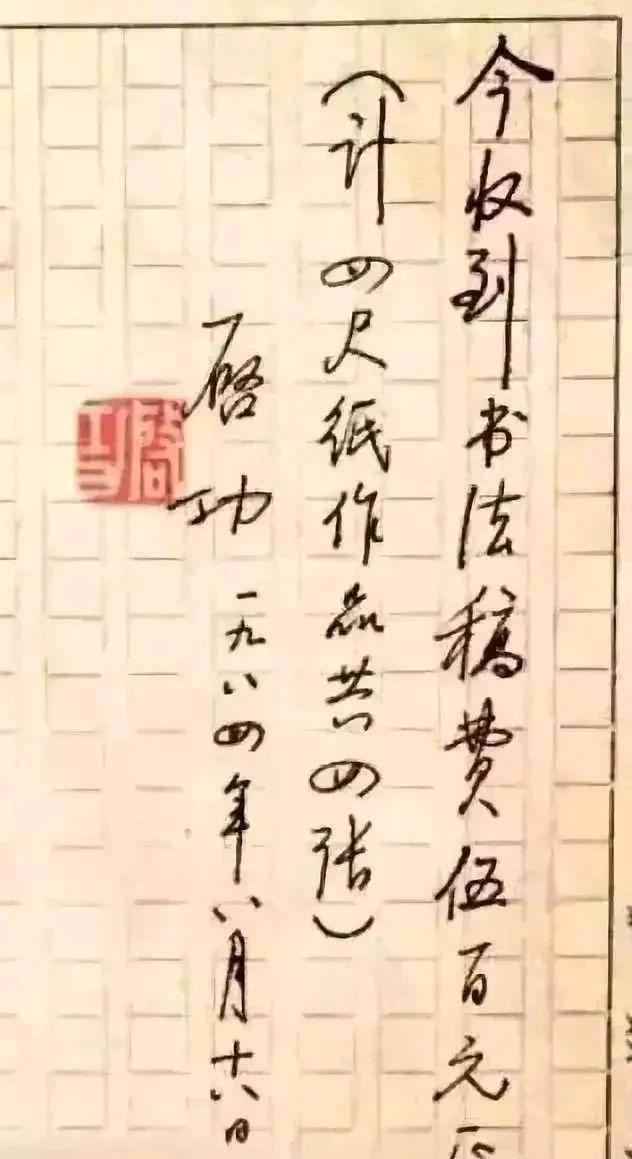 今收到书法稿费伍百元
(计四尺纸作品共四张)
启功 一九八四年八月十六日
启功